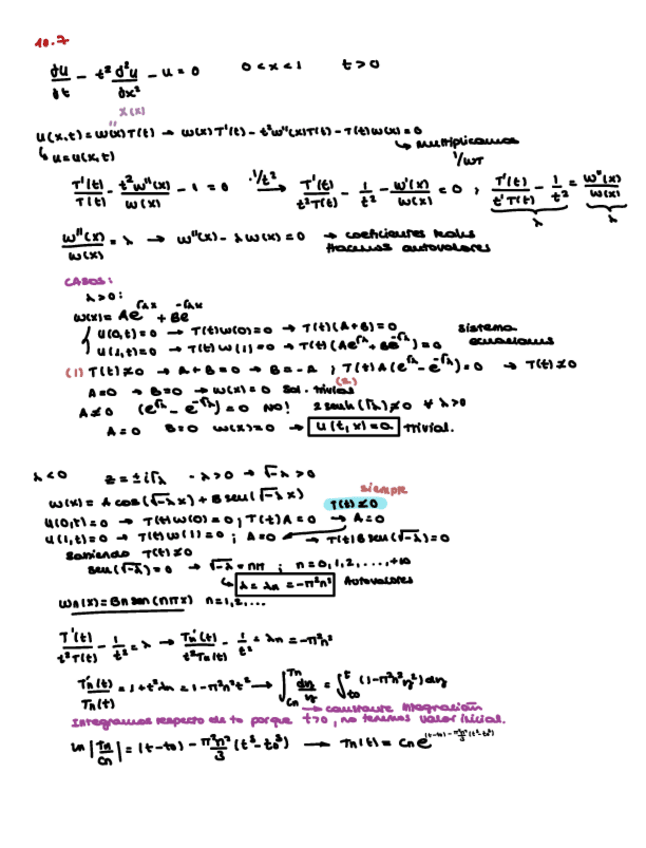 10.7
∂u/∂t - t² ∂²u/∂x² - u = 0    0 < x < 1    t > 0
X(x)
"
u(x,t) = w(x)T(t) → w(x)T'(t) - t²w''(x)T(t) - T(t)w(x) = 0
↳ u = u(x,t)    ↳ Multiplicamos 1/wT
T'(t)/T(t) - t²w''(x)/w(x) - 1 = 0  ·1/t² →  T'(t)/t²T(t) - 1/t² - w'(x)/w(x) = 0 ; T'(t)/t'T(t) - 1/t² = w''(x)/w(x)
λ    λ
w''(x)/w(x) = λ → w''(x) - λw(x) = 0 → coeficientes reales
Hacemos autovalores
CASOS:
λ > 0:
w(x) = Ae^{√λx} + Be^{-√λx}
u(0,t) = 0 → T(t)w(0) = 0 → T(t)(A+B) = 0    sistema
u(1,t) = 0 → T(t)w(1) = 0 → T(t)(Ae^{√λ} + Be^{-√λ}) = 0    ecuaciones
(1) T(t) ≠ 0 → A + B = 0 → B = -A ; T(t)A(e^{√λ} - e^{-√λ}) = 0 → T(t) ≠ 0
(2)
A = 0 → B = 0 → w(x) = 0 Sol. trivial
A ≠ 0  (e^{√λ} - e^{-√λ}) = 0 NO!  2senh(√λ) ≠ 0 ∀ λ > 0
A = 0  B = 0  w(x) = 0 → u(t,x) = 0. trivial.
λ < 0  z = ±i√λ  -λ > 0 → √-λ > 0
siempre
w(x) = A cos(√-λ x) + B sen(√-λ x)    T(t) ≠ 0
u(0,t) = 0 → T(t)w(0) = 0 ; T(t)A = 0 → A = 0
u(1,t) = 0 → T(t)w(1) = 0 ; A = 0 → T(t)B sen(√-λ) = 0
Sabiendo T(t) ≠ 0
sen(√-λ) = 0 → √-λ = nπ ; n = 0,1,2,...,+∞
↳ λ = λn = -π²n² Autovalores
wn(x) = Bn sen(nπx)  n = 1,2,...
T'(t)/t²T(t) - 1/t² = λ → Tn'(t)/t²Tn(t) - 1/t² = λn = -π²n²
Tn'(t)/Tn(t) = 1 + t²λn = 1 - π²n²t² → ∫_{Cn}^{Tn} dη/η = ∫_{to}^{t} (1 - π²n²η²)dη
→ constante integración
Integramos respecto de to porque t>0, no tenemos valor inicial.
ln |Tn/Cn| = (t-to) - π²n²/3 (t³-to³) → Tn(t) = Cn e^{(t-to) - π²n²/3 (t³-to³)}